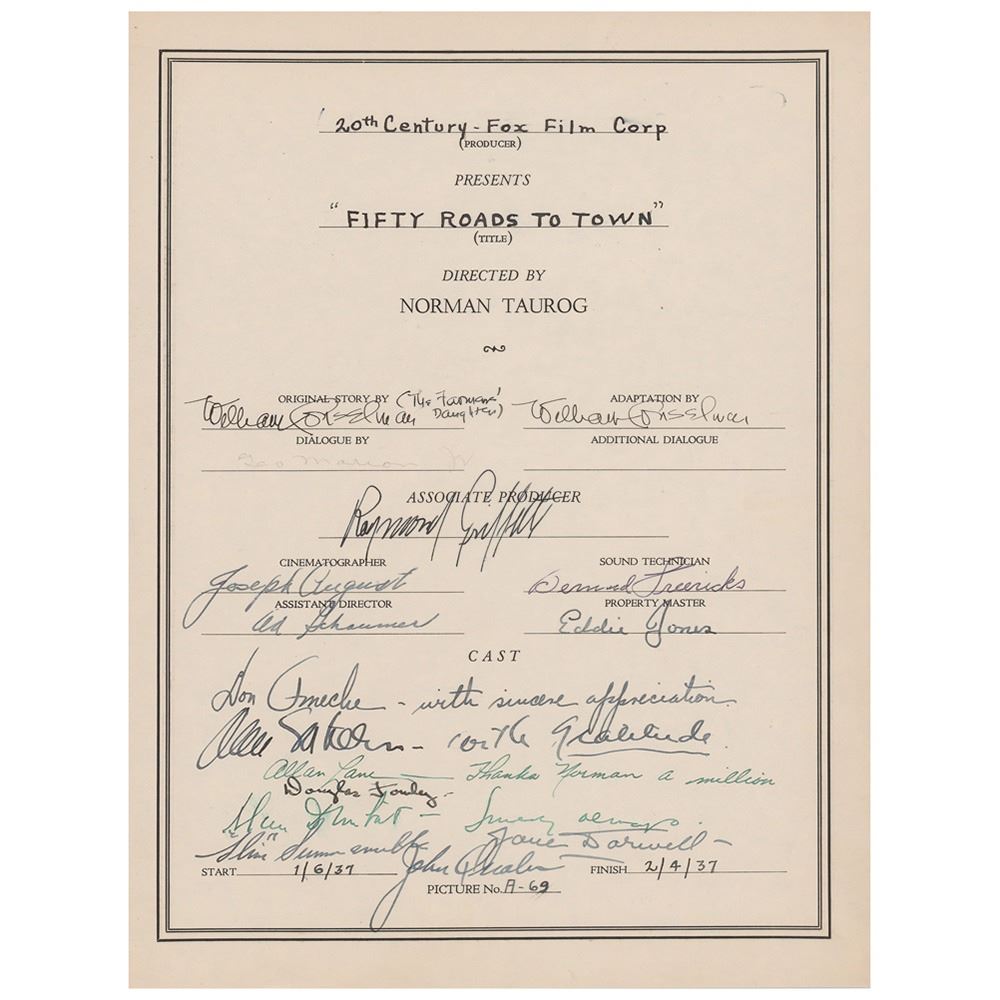 20th Century-Fox Film Corp
(PRODUCER)
PRESENTS
"FIFTY ROADS TO TOWN"
(TITLE)
DIRECTED BY
NORMAN TAUROG
ORIGINAL STORY BY
(The Farmers' Daughter)
ADAPTATION BY
William Conselman
William Conselman
DIALOGUE BY
ADDITIONAL DIALOGUE
Geo Marion Jr
ASSOCIATE PRODUCER
Raymond Griffith
CINEMATOGRAPHER
SOUND TECHNICIAN
Joseph August
Bernard Freericks
ASSISTANT DIRECTOR
PROPERTY MASTER
Ad Schaumer
Eddie Jones
CAST
Don Ameche - with sincere appreciation.
with Gratitude.
Allan Lane — Thanks Norman a million
Douglas Fowley -
"Slim" Summerville
Jane Darwell -
John Qualen
START 1/6/37
FINISH 2/4/37
PICTURE No. A-69